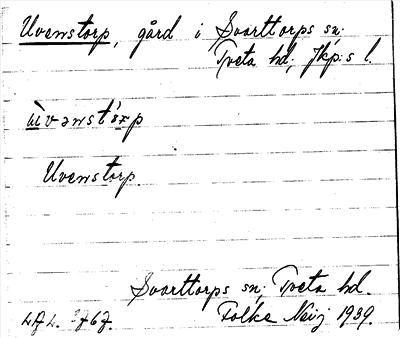 Uvenstorp, gård i Svarttorps sn.
Tveta hd; Jkp:s l.
ùvənstórp
Uvenstorp
Svarttorps sn; Tveta hd.
Folke 1939.